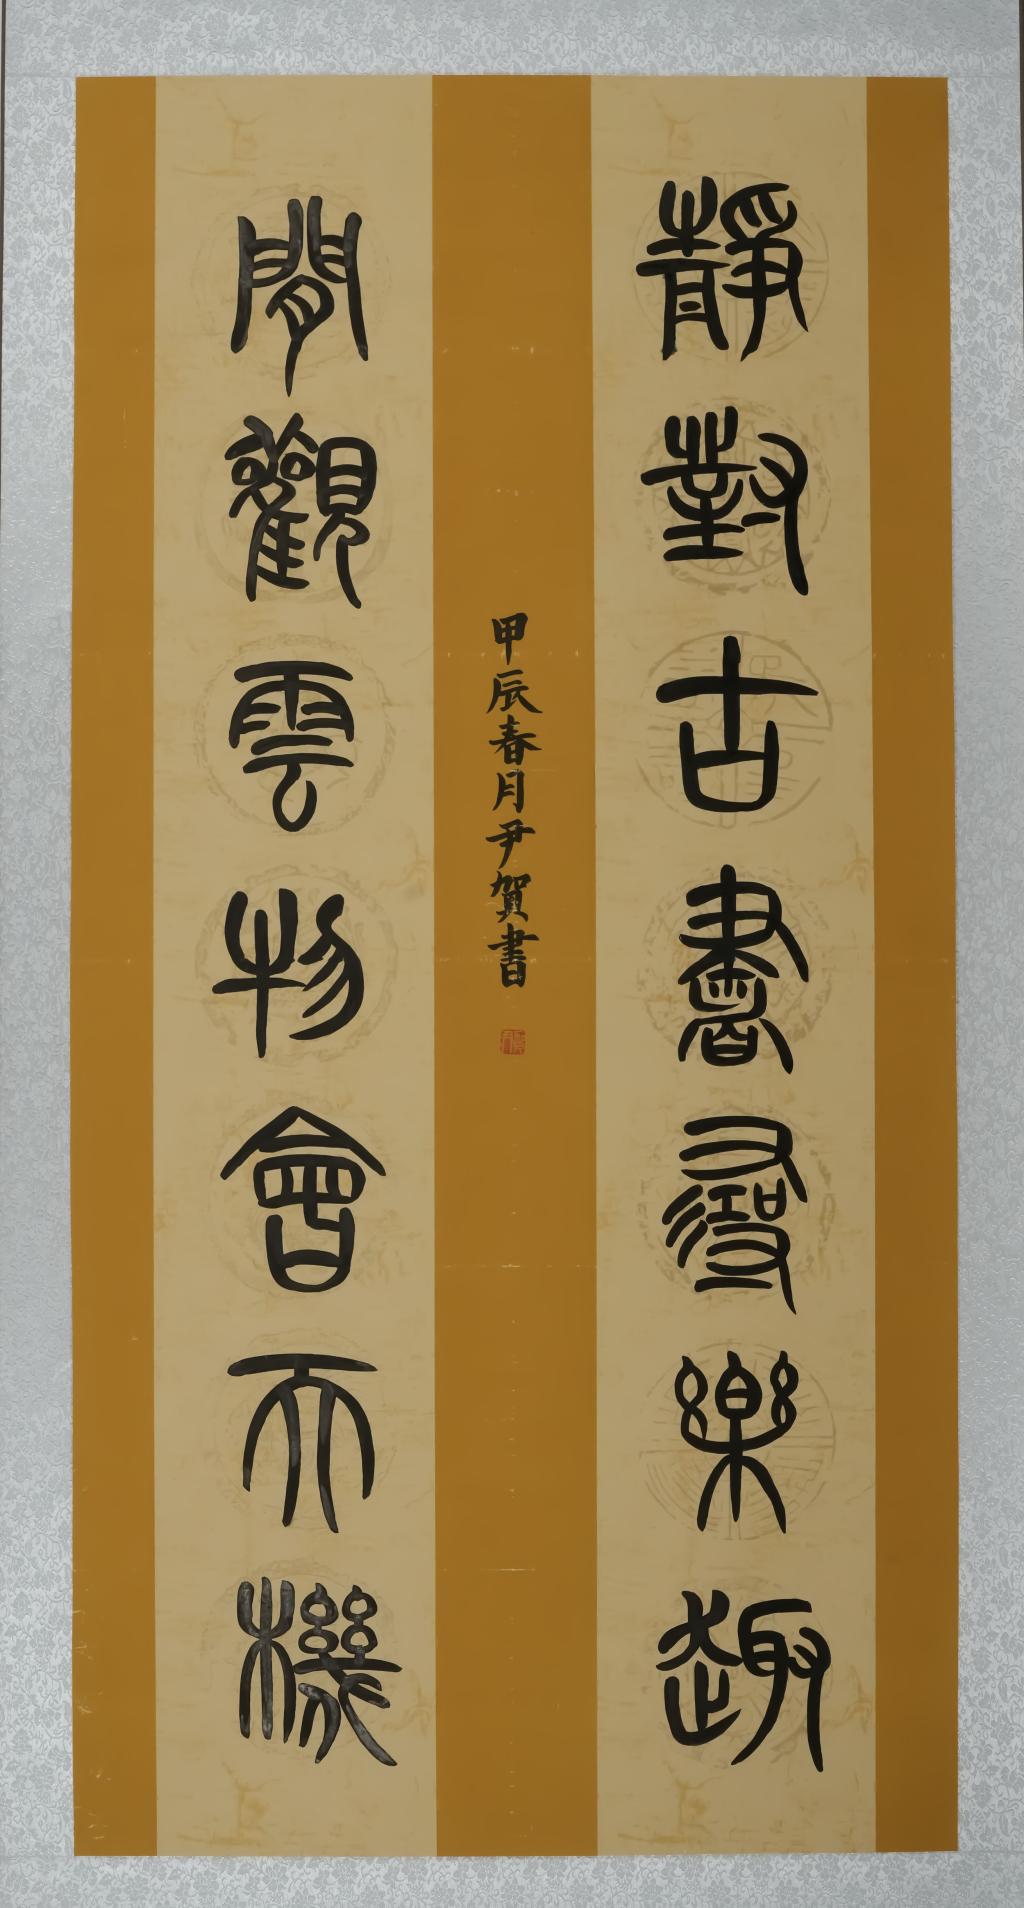 靜對古書尋樂趣
閒觀雲物會天機
甲辰春月尹賀書